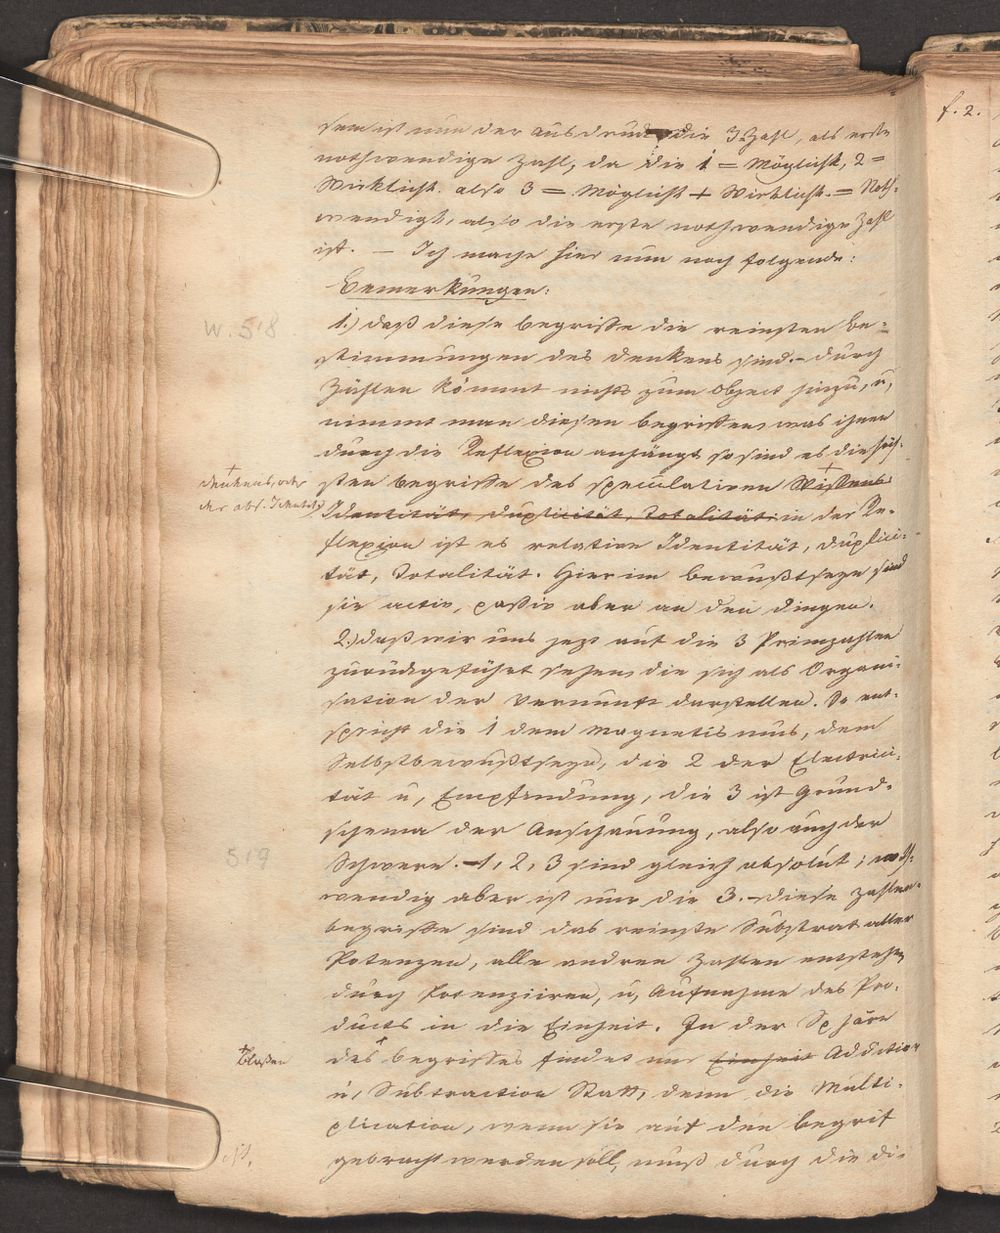 sem ist nun der Ausdruck die 3 Zahl, als erste
nothwendige Zahl, da die 1 = Möglichk, 2 =
Wirklichk. also 3 = Möglichk + Wirklichk. = Noth-
wendigk, also die erste nothwendige Zahl
ist. — Ich mache hier nun noch folgende:
Bemerkungen:
W. 518
1.) daß diese Begriffe die reinsten Be-
stimmungen des Denkens sind. – durch
Zählen kömmt nichts zum Object hinzu, u,
nimmt man diesen Begriffen, was ihnen
durch die Reflexion anhängt so sind es die höch-
sten Begriffe des speculativen Wissens
+ Denkens, oder
der abs. Identität
Identität, Duplicität, Totalität: in der Re-
flexion ist es relative Identität, Duplici-
tät, Totalität. Hier im Bewußtseyn sind
sie activ, passiv aber an den Dingen.
2.) daß wir uns jezt auf die 3 Primzahlen
zurückgeführt sehen, die sich als Organi-
sation der Vernunft darstellen. So ent-
spricht die 1 dem Magnetismus, dem
Selbstbewußtseyn, die 2 der Electrici-
tät u, Empfindung, die 3 ist Grund-
schema der Anschauung, also auch der
519
Schwere. – 1, 2, 3 sind gleich absolut; noth-
wendig aber ist nur die 3. – diese Zahlen-
begriffe sind das reinste Substrat aller
Potenzen, alle andren Zahlen entstehen
durch Potenziiren, u, Aufnahme des Pro-
ducts in die Einheit. In der Sphäre
+ bloßen
des + Begriffes findet nur Einheit Addition
u, Subtraction Statt, denn die Multi-
plication, wenn sie auf den Begrif
gebracht werden soll, muß durch die Di-
f. 2.